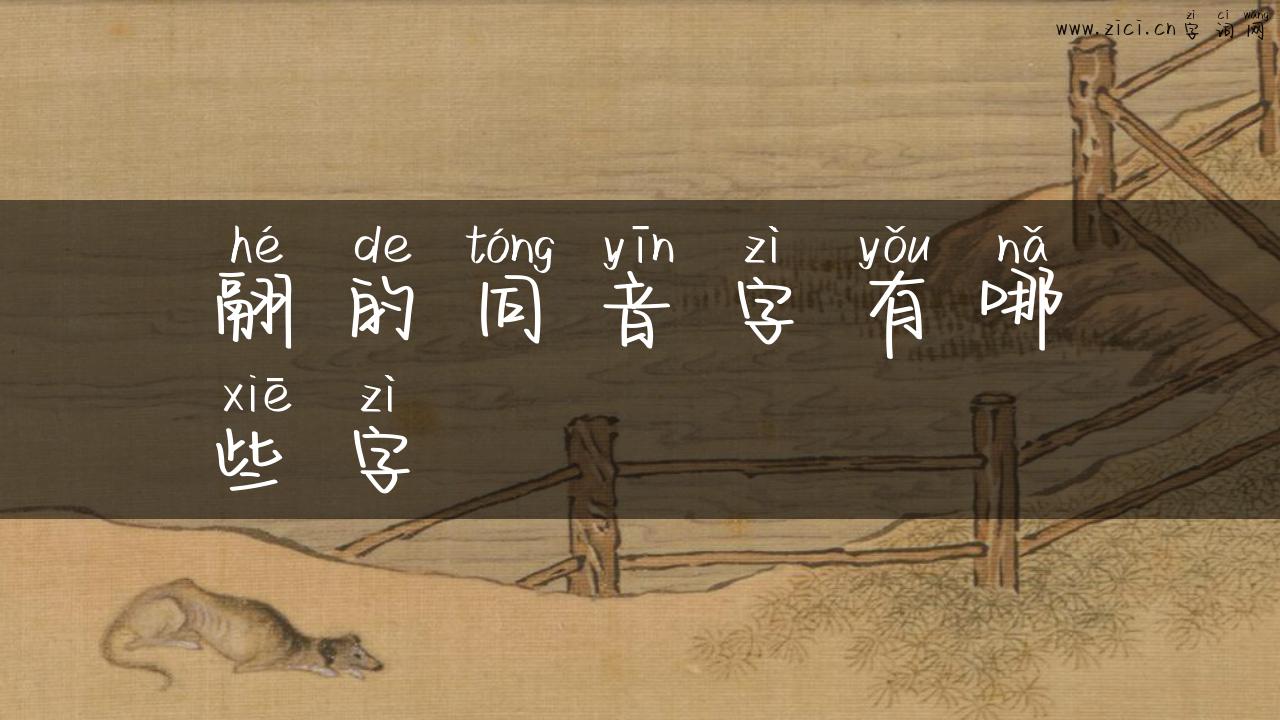 zi ci wang
www.zici.cn 字词网
hé de tóng yīn zì yǒu nǎ
翮的同音字有哪
xiē zì
些字